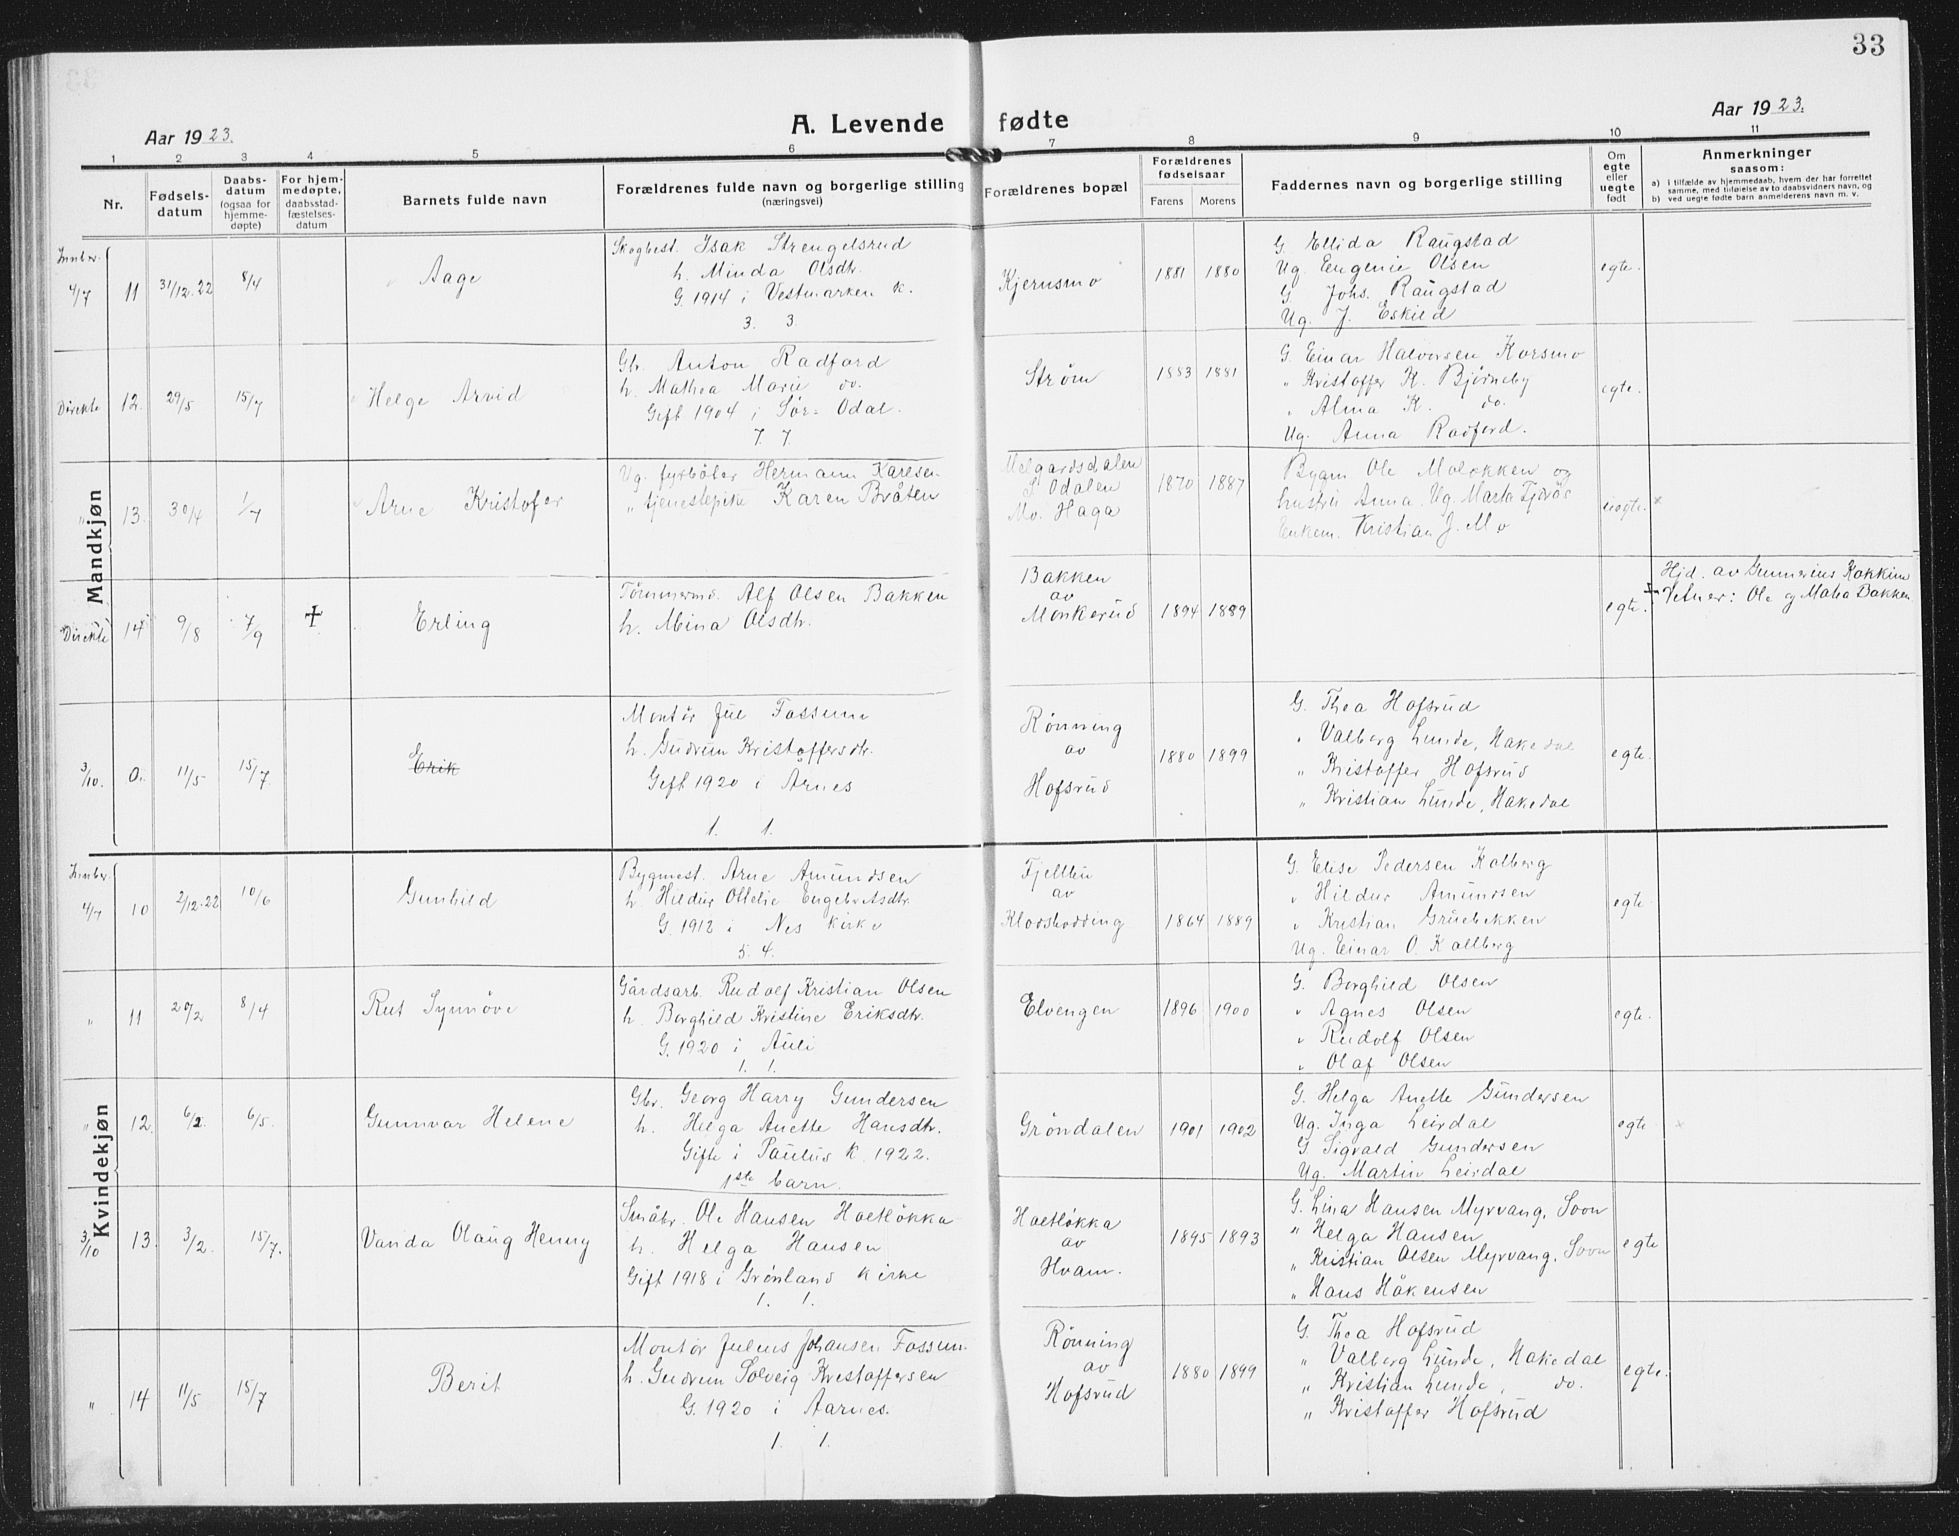 33
Aar 1923.
A. Levende fødte
Aar 1923.
1 2 3 4 5 6 7 8 9 10 11
Nr.
Fødsels-
datum
Daabs-
datum
(ogsaa for
hjemme-
døpte)
For hjem-
medøpte,
daabsstad-
fæstelses-
datum
Barnets fulde navn
Forældrenes fulde navn og borgerlige stilling
(næringsvei)
Forældrenes bopæl
Forældrenes
fødselsaar
Farens Morens
Faddernes navn og borgerlige stilling
Om
egte
eller
uegte
født
Anmerkninger
saasom:
a) i tilfælde av hjemmedaab, hvem der har forrettet
samme, med tilføielse av to daabsvidners navn, og
b) ved uegte fødte barn anmelderens navn m. v.
Mandkjøn
Innber.
4/7 11 31/12.22 8/4 Aage
Skogbest. Isak Strengelsrud
h. Minda Olsdtr.
G. 1914 i Vestmarken k.
3. 3.
Kjernsmo 1881 1880
G. Ellida Raugstad
Ug. Eugenie Olsen
G. Johs. Raugstad
Ug. J. Eskild
egte.
Direkte 12. 29/5 15/7 Helge Arvid
Gbr. Anton Radford
h. Mathea Marie do.
Gift 1904 i Sør-Odal.
7. 7.
Strøm 1883 1881
G. Einar Halvorsen Korsmo
" Kristoffer K. Bjørneby
" Alma K. do.
Ug. Anna Radford.
egte.
" 13. 30/4 1/7 Arne Kristofer
Ug. fyrbøter Hermann Karlsen
" tjenestepike Karen Bråten
Melgardsdalen
S. Odalen
Mv. Haga
1870 1887
Bygm Ole Moløkken og
hustru Anna. Ug. Marta
Enkem. Kristian J. Mo
uegte. x
Direkte 14 9/8 7/9 + Erling
Tømmermd. Alf Olsen Bakken
h. Mina Olsdtr.
Bakken
av
Monkerud
1894 1889
egte.
+ Hjd. av Gunnerius
Vitner: Ole og Matea Bakken
3/10. 0. 11/5 15/7. Erik
Montør Jul Fossum
h. Gudrun Kristoffersdtr.
Gift 1920 i Årnes
1. 1.
Rønning
av
Hofsrud
1880 1899
G. Thea Hofsrud
" Valberg Lunde, Hakedal
" Kristoffer Hofsrud
" Kristian Lunde, Hakedal
egte.
Kvindekjøn
Innber.
4/7 10 2/12.22 10/6 Gunhild
Bygmest. Arne Amundsen
h. Hildur Ottelie Engebretsdtr.
G. 1912 i Nes kirke
5. 4.
Fjellbu
av
Klodshodding
1864 1889
G. Elise Pedersen Kalberg
" Hildur Amundsen
" Kristian Gruebekken
Ug. Einar O. Kallberg
egte.
" 11 20/2 8/4 Rut Synnøve
Gårdsarb. Rudolf Kristian Olsen
h. Borghild Kristine Eriksdtr.
G. 1920 i Auli
1. 1.
Elvengen 1896 1900
G. Borghild Olsen
" Agnes Olsen
" Rudolf Olsen
" Olaf Olsen
egte.
" 12. 6/2 6/5. Gunnvar Helene
Gbr. Georg Harry Gundersen
h. Helga Anette Hansdtr.
Gifte i Paulus k. 1922.
1ste barn.
Grøndalen 1901 1902
G. Helga Anette Gundersen
Ug. Inga Leirdal
G Sigvald Gundersen
Ug. Martin Leirdal
egte x
3/10 13. 3/2. 15/7. Vanda Olaug Henny
Småbr. Ole Hansen Hoetløkka
h. Helga Hansen
Gift 1918 i Grønland kirke
1. 1.
Hoetløkka
av
Hvam.
1895 1893
G. Lina Hansen Myrvang, Soon
" Helga Hansen
" Kristian Olsen Myrvang, Soon
" Hans Håkensen
egte
" 14 11/5 15/7 Berit
Montør Julius Johansen Fossum
h. Gudrun Solveig Kristoffersen
G. 1920 i Aarnes.
1. 1.
Rønning
av
Hofsrud
1880 1899
G. Thea Hofsrud
" Valberg Lunde, Hakedal
" Kristian Lunde, do.
" Kristoffer Hofsrud
egte.